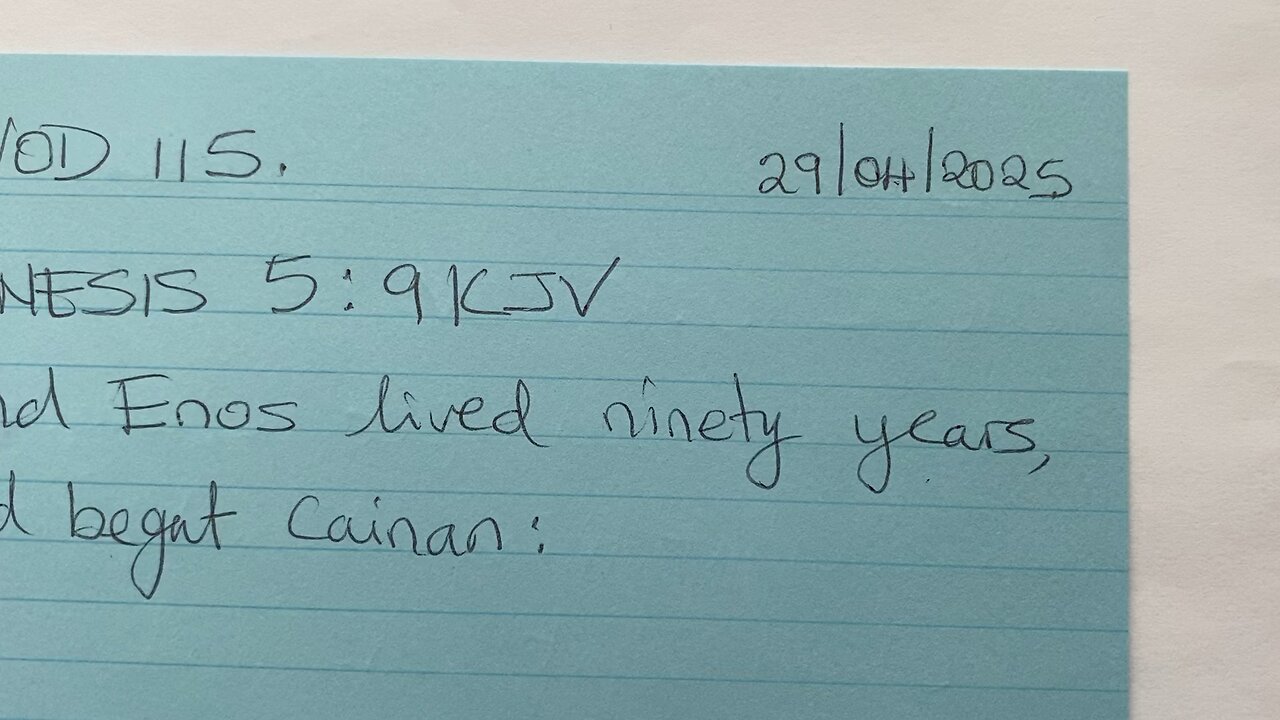 VOD 115. 29/04/2025
NESIS 5:9 KJV
nd Enos lived ninety years,
d begat Cainan: